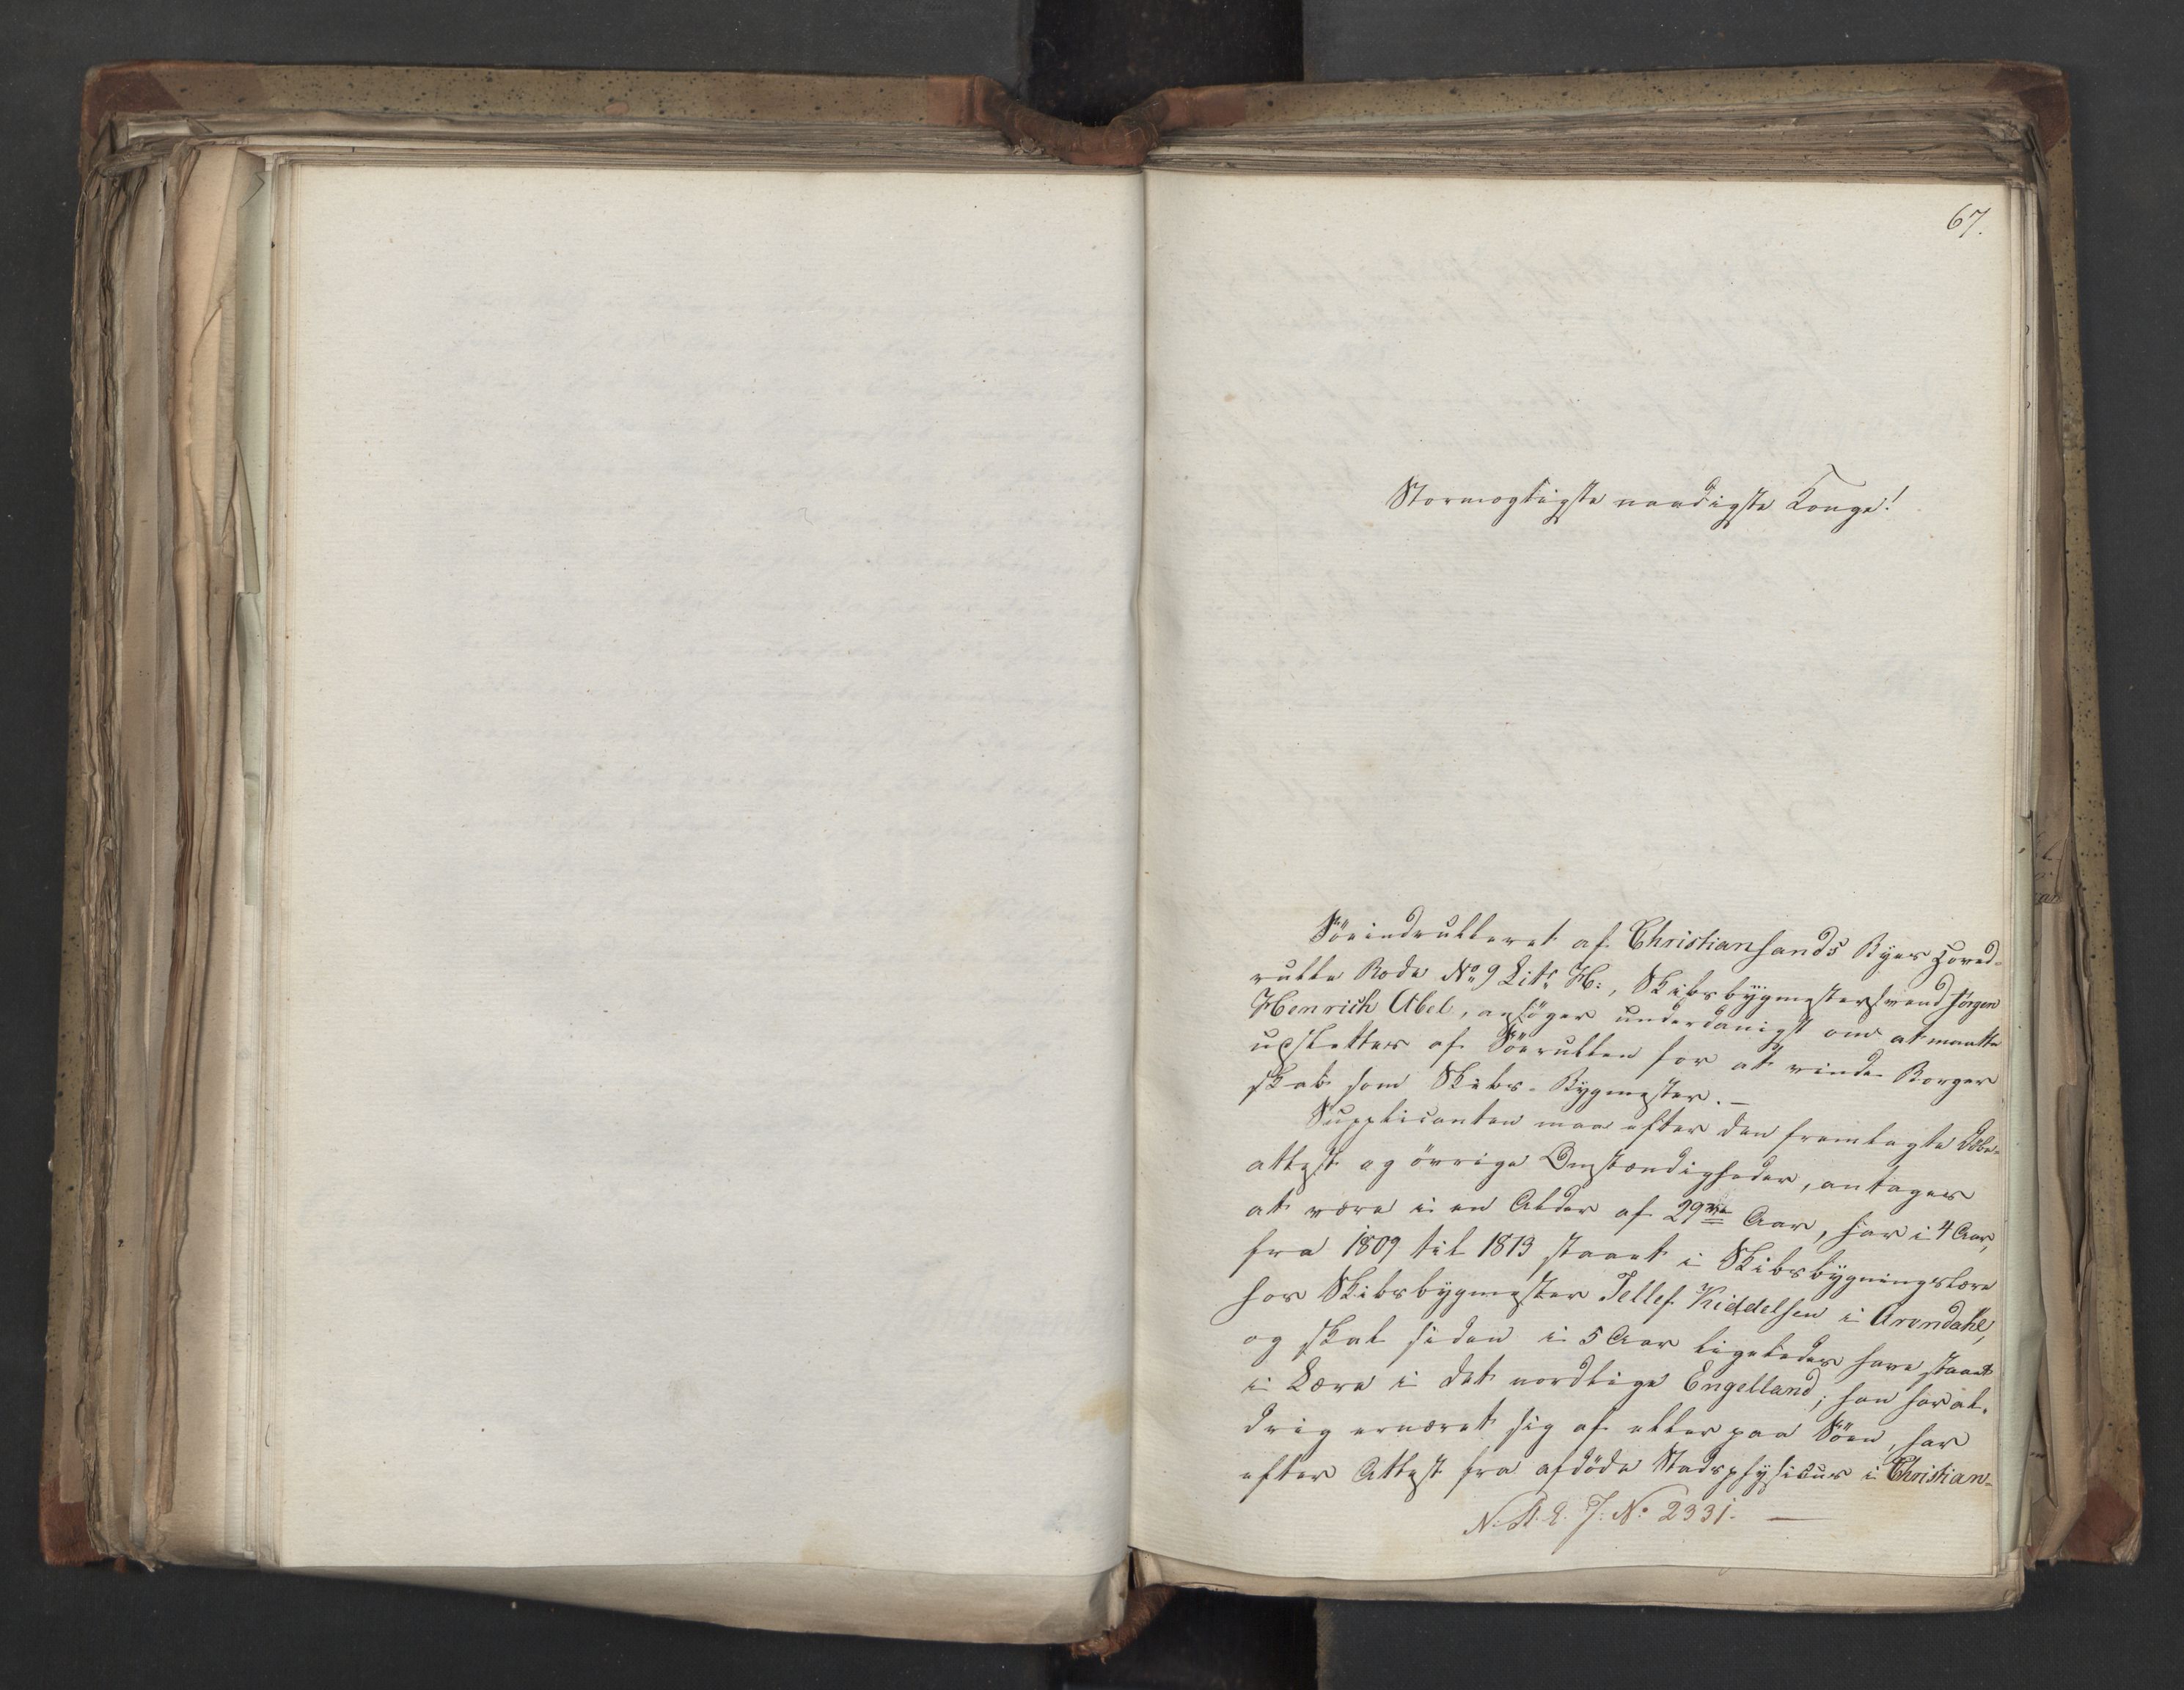 67.
Stormægtigste naadigste Konge!
Söeindrulleret af Christiansands Byes Hoved-
rulle Rode No 9 Litr H:, Skibsbygmestersvend Jörgen
Henrich Abel, ansöger underdanigst om at maatte
udslettes af Söerullen for at vinde Borger
skab som Skibs-Bygmester. —
Supplicanten maa efter den fremlagte Döbe-
attest og övrige Omstændigheder, antages
at være i en Alder af 29ve Aar, har i 4 Aar,
fra 1809 til 1813 staaet i Skibsbygningslære
hos Skibsbygmester Tellef Kiddelsen i Arendahl,
og skal siden i 5 Aar ligeledes have staaet
i Lære i det nordlige Engelland; han har al-
drig ernæret sig af eller paa Söen, har
efter Attest fra afdöde Stadsphysicus i Christian-
J: No 2331. —